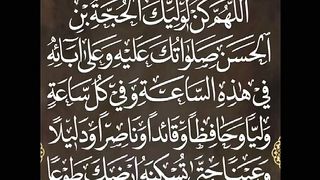 اللَّهُمَّ كُنْ لِوَلِيِّكَ الْحُجَّةِ بْنِ
الْحَسَنِ صَلَوَاتُكَ عَلَيْهِ وَعَلَى آبَائِهِ
فِي هَذِهِ السَّاعَةِ وَفِي كُلِّ سَاعَةٍ
وَلِيًّا وَحَافِظًا وَقَائِدًا وَنَاصِرًا وَدَلِيلًا
وَعَيْنًا حَتَّى تُسْكِنَهُ أَرْضَكَ طَوْعًا